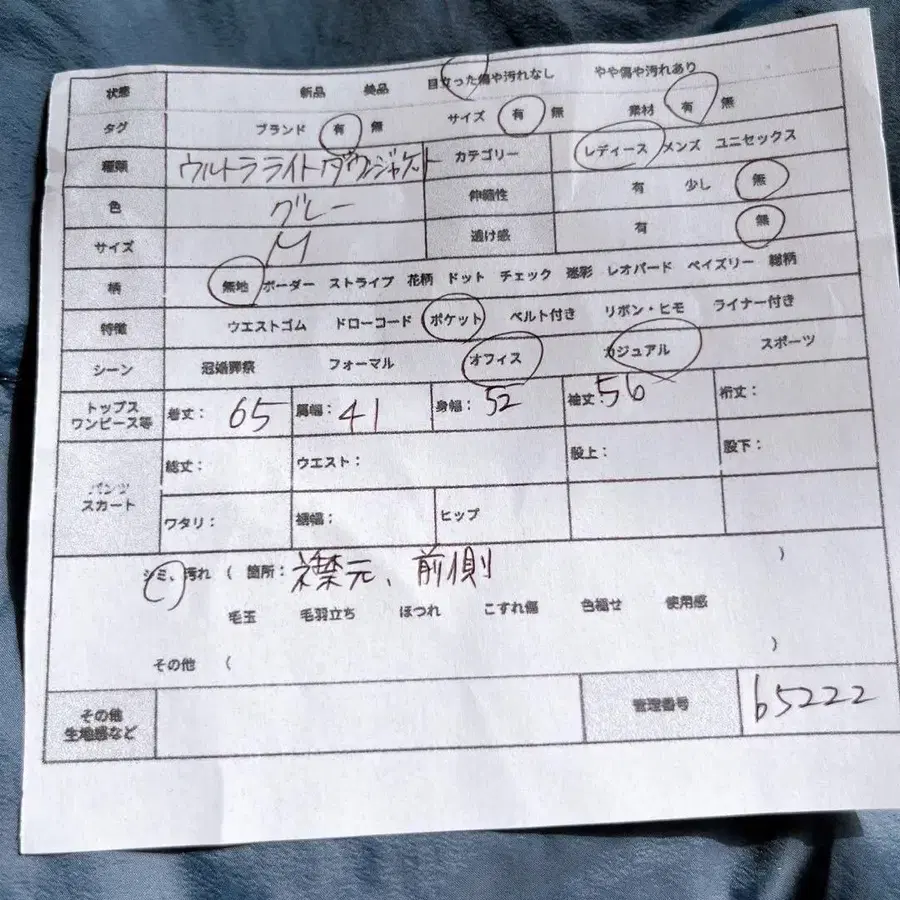 状態 新品 美品 目立った傷や汚れなし やや傷や汚れあり
タグ ブランド 有 無 サイズ 有 無 素材 有 無
種類 ウルトラライトダウンジャケット カテゴリー レディース メンズ ユニセックス
色 グレー 伸縮性 有 少し 無
サイズ M 透け感 有 無
柄 無地 ボーダー ストライプ 花柄 ドット チェック 迷彩 レオパード ペイズリー 総柄
特徴 ウエストゴム ドローコード ポケット ベルト付き リボン・ヒモ ライナー付き
シーン 冠婚葬祭 フォーマル オフィス カジュアル スポーツ
トップス
ワンピース等 着丈: 65 肩幅: 41 身幅: 52 袖丈: 56 裄丈:
パンツ
スカート 総丈: ウエスト: 股上: 股下:
ワタリ: 裾幅: ヒップ
シミ、汚れ ( 箇所: 襟元、前側 )
毛玉 毛羽立ち ほつれ こすれ傷 色褪せ 使用感
その他 ( )
その他
生地感など 管理番号 b5222